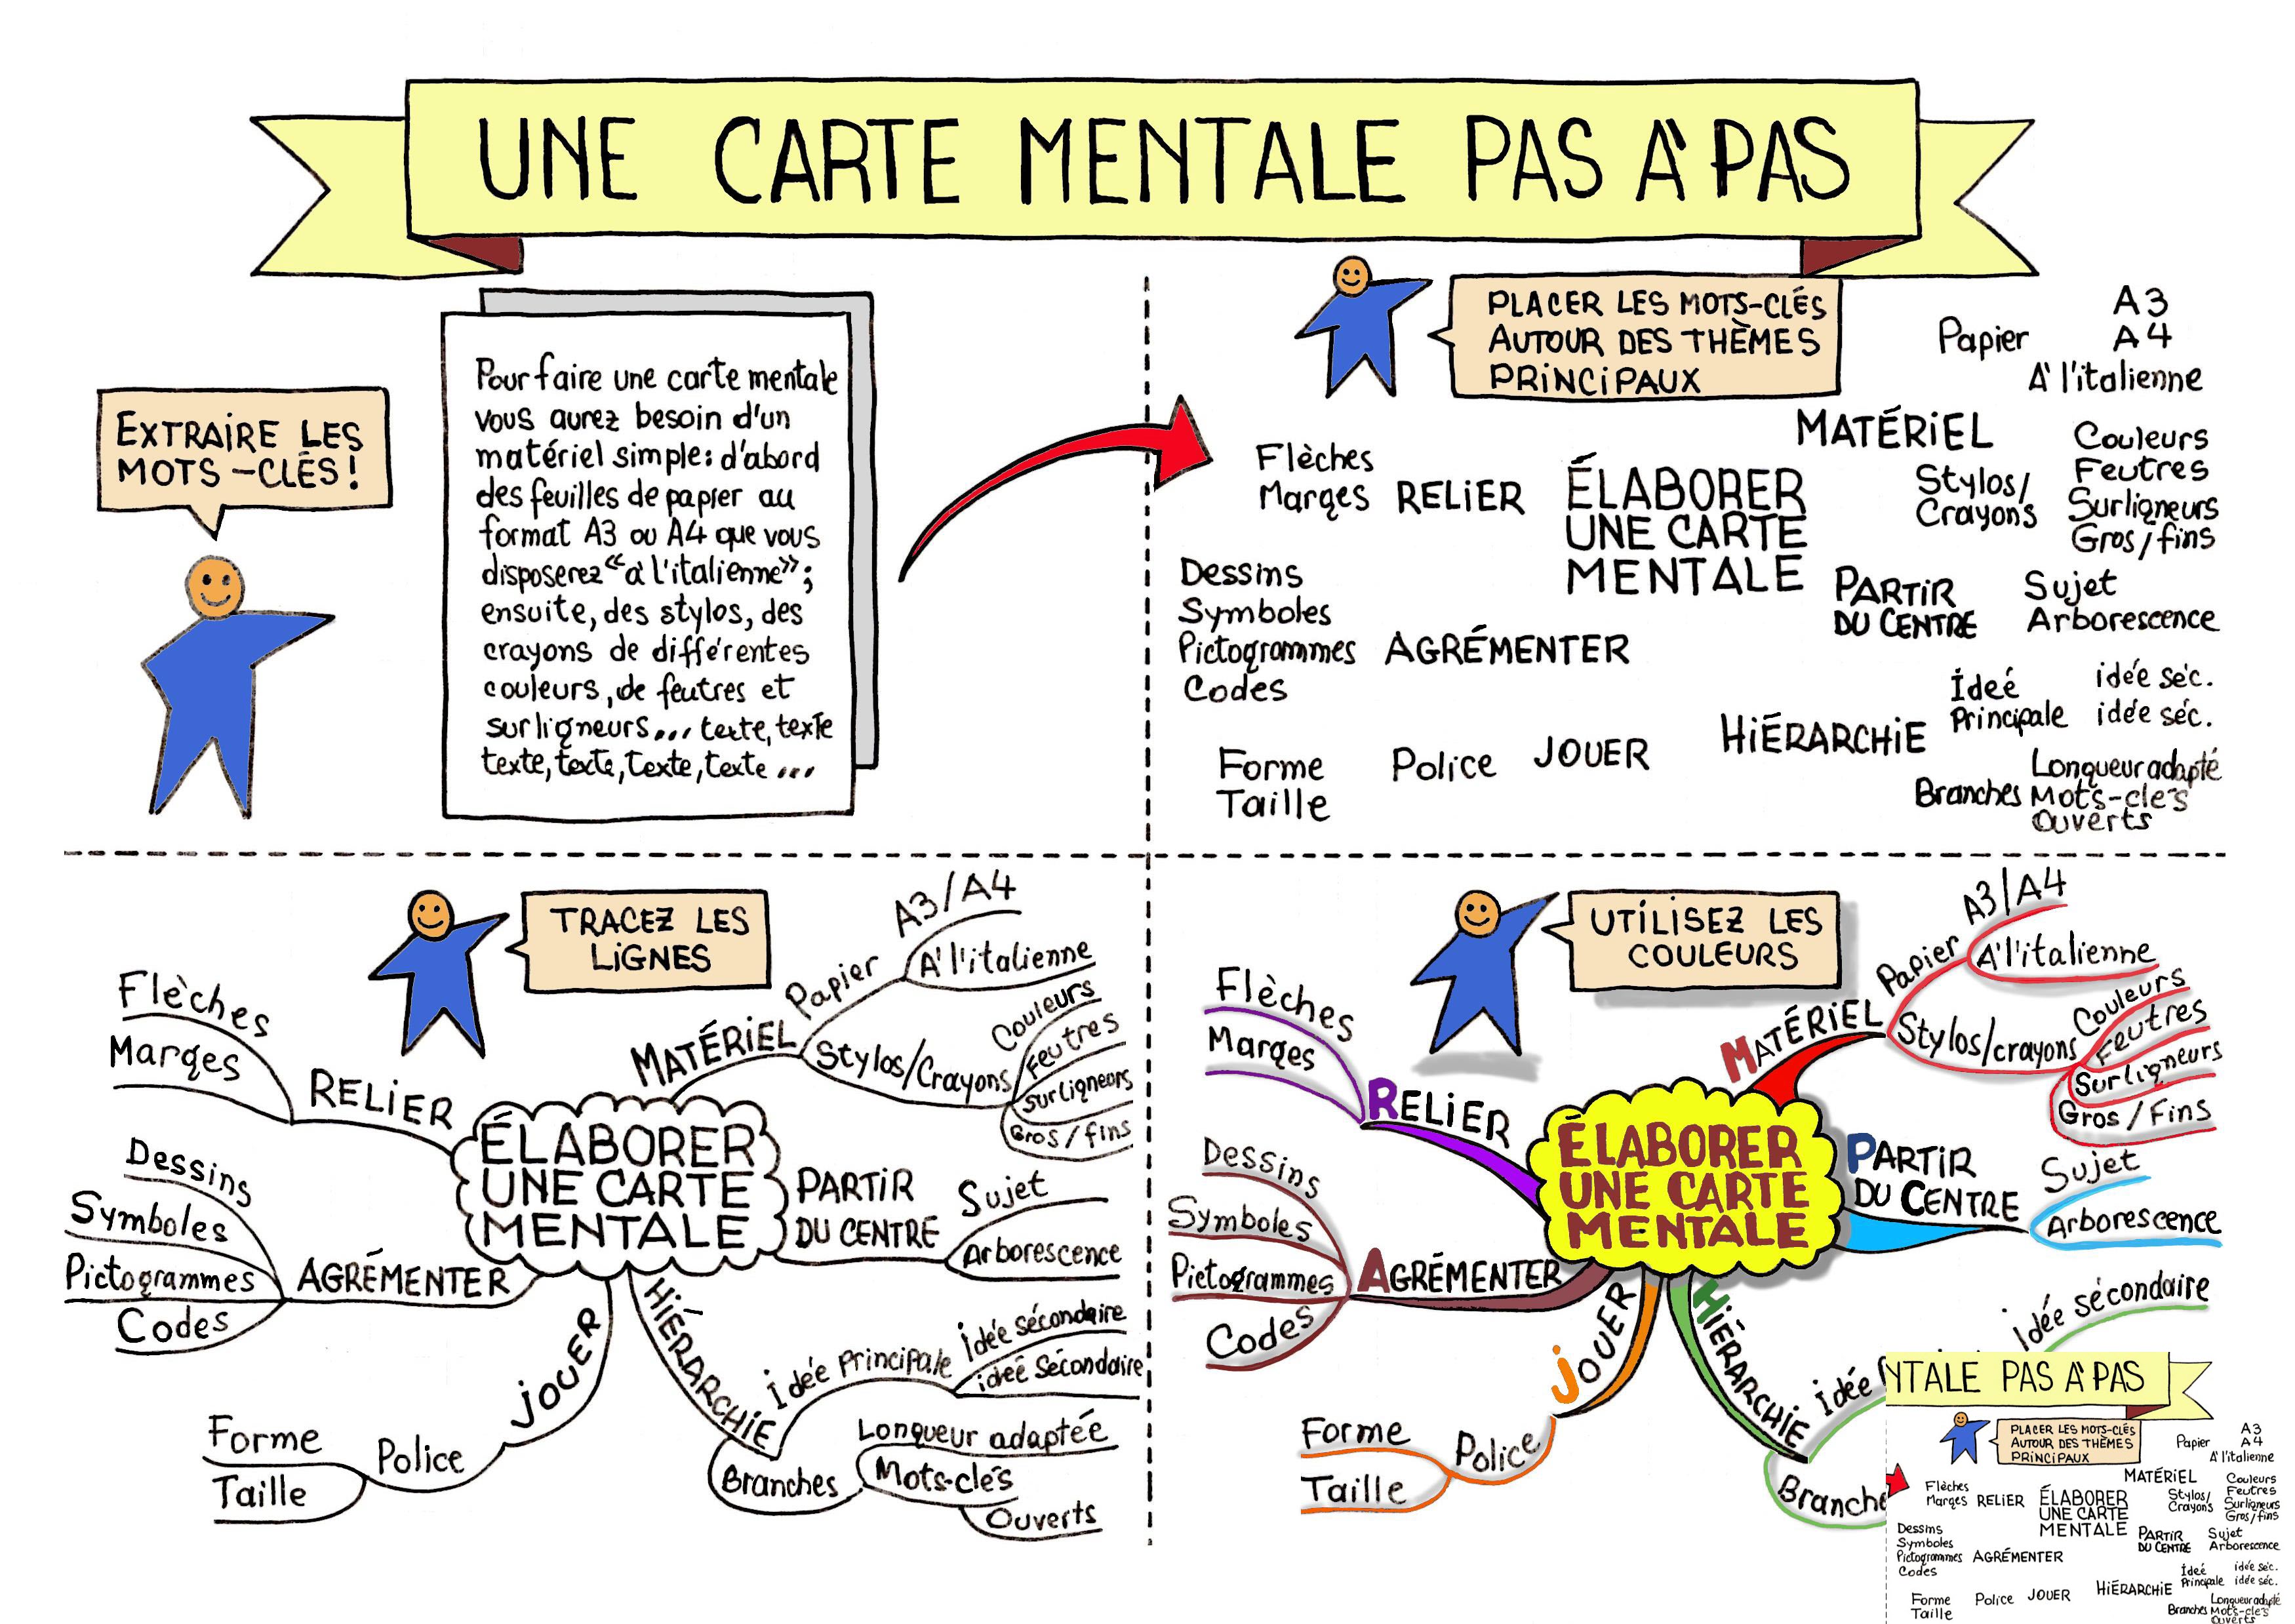 UNE CARTE MENTALE PAS À PAS
EXTRAIRE LES
MOTS-CLÉS!
Pour faire une carte mentale
vous aurez besoin d'un
matériel simple: d'abord
des feuilles de papier au
format A3 ou A4 que vous
disposerez "à l'italienne";
ensuite, des stylos, des
crayons de différentes
couleurs, de feutres et
surligneurs... texte, texte
texte, texte, texte, texte ...
PLACER LES MOTS-CLÉS
AUTOUR DES THÈMES
PRINCIPAUX
A3
Papier A4
À l'italienne
MATÉRIEL
Couleurs
Stylos/ Feutres
Crayons Surligneurs
Gros/fins
Flèches
Marges RELIER
ÉLABORER
UNE CARTE
MENTALE
Dessins
Symboles
Pictogrammes AGRÉMENTER
Codes
PARTIR Sujet
DU CENTRE Arborescence
Forme Police JOUER
Taille
HIÉRARCHIE
Ideé idée séc.
Principale idée séc.
Longueur adapté
Branches Mots-clés
Ouverts
TRACEZ LES
LIGNES
Flèches
Marges
RELIER
Dessins
Symboles
Pictogrammes
Codes
AGRÉMENTER
ÉLABORER
UNE CARTE
MENTALE
MATÉRIEL
Papier
A3/A4
À l'italienne
Stylos/Crayons
Couleurs
Feutres
Surligneurs
Gros/fins
PARTIR
DU CENTRE
Sujet
Arborescence
HIÉRARCHIE
Idée Principale
Idée sécondaire
ideé Sécondaire
Branches
Longueur adaptée
Mots-clés
Ouverts
JOUER
Police
Forme
Taille
UTILISEZ LES
COULEURS
Flèches
Marges
RELIER
Dessins
Symboles
Pictogrammes
Codes
AGRÉMENTER
ÉLABORER
UNE CARTE
MENTALE
MATÉRIEL
Papier
A3/A4
À l'italienne
Stylos/crayons
Couleurs
Feutres
Surligneurs
Gros/Fins
PARTIR
DU CENTRE
Sujet
Arborescence
HIÉRARCHIE
Idée
idée sécondaire
Branche
JOUER
Police
Forme
Taille
NTALE PAS À PAS
PLACER LES MOTS-CLÉS
AUTOUR DES THÈMES
PRINCIPAUX
A3
Papier A4
À l'italienne
MATÉRIEL
Couleurs
Stylos/ Feutres
Crayons Surligneurs
Gros/fins
Flèches
Marges RELIER
ÉLABORER
UNE CARTE
MENTALE
Dessins
Symboles
Pictogrammes AGRÉMENTER
Codes
PARTIR Sujet
DU CENTRE Arborescence
Forme Police JOUER
Taille
HIÉRARCHIE
Ideé idée séc.
Principale idée séc.
Longueur adapté
Branches Mots-clés
Ouverts